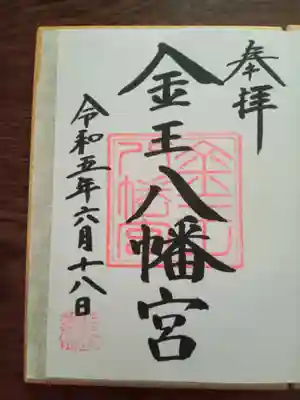 奉拝
金王八幡宮
令和五年六月十八日